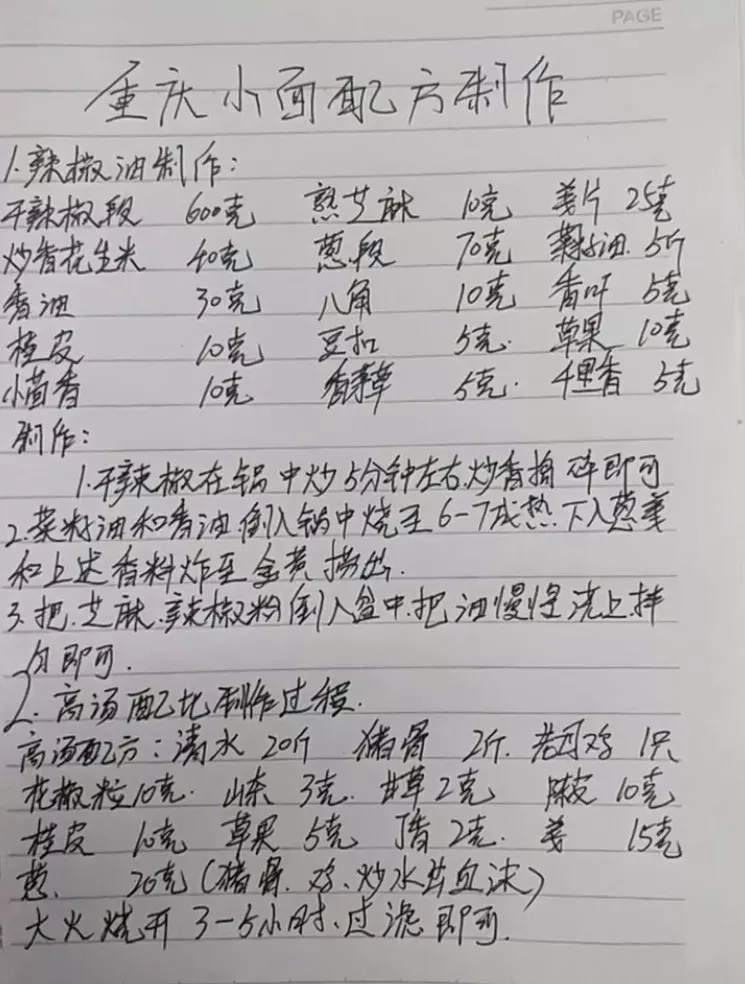 PAGE
重庆小面配方制作
1.辣椒油制作：
干辣椒段 600克 熟芝麻 10克 姜片 25克
炒香花生米 40克 葱段 70克 菜籽油 5斤
香油 30克 八角 10克 香叶 5克
桂皮 10克 豆扣 5克 草果 10克
小茴香 10克 香茅草 5克 千里香 5克
制作：
1.干辣椒在锅中炒5分钟左右.炒香捣碎即可
2.菜籽油和香油倒入锅中烧至6-7成热.下入葱姜
和上述香料炸至金黄捞出.
3.把.芝麻.辣椒粉倒入盆中.把油慢慢浇上拌
匀即可.
2.高汤配比制作过程.
高汤配方：清水 20斤 猪骨 2斤. 老母鸡 1只
花椒粒10克. 山奈 3克. 甘草2克 陈皮 10克
桂皮 10克 草果 5克 丁香 2克. 姜 15克
葱. 20克(猪骨.鸡、炒水去血沫)
大火烧开3-5小时.过滤即可.